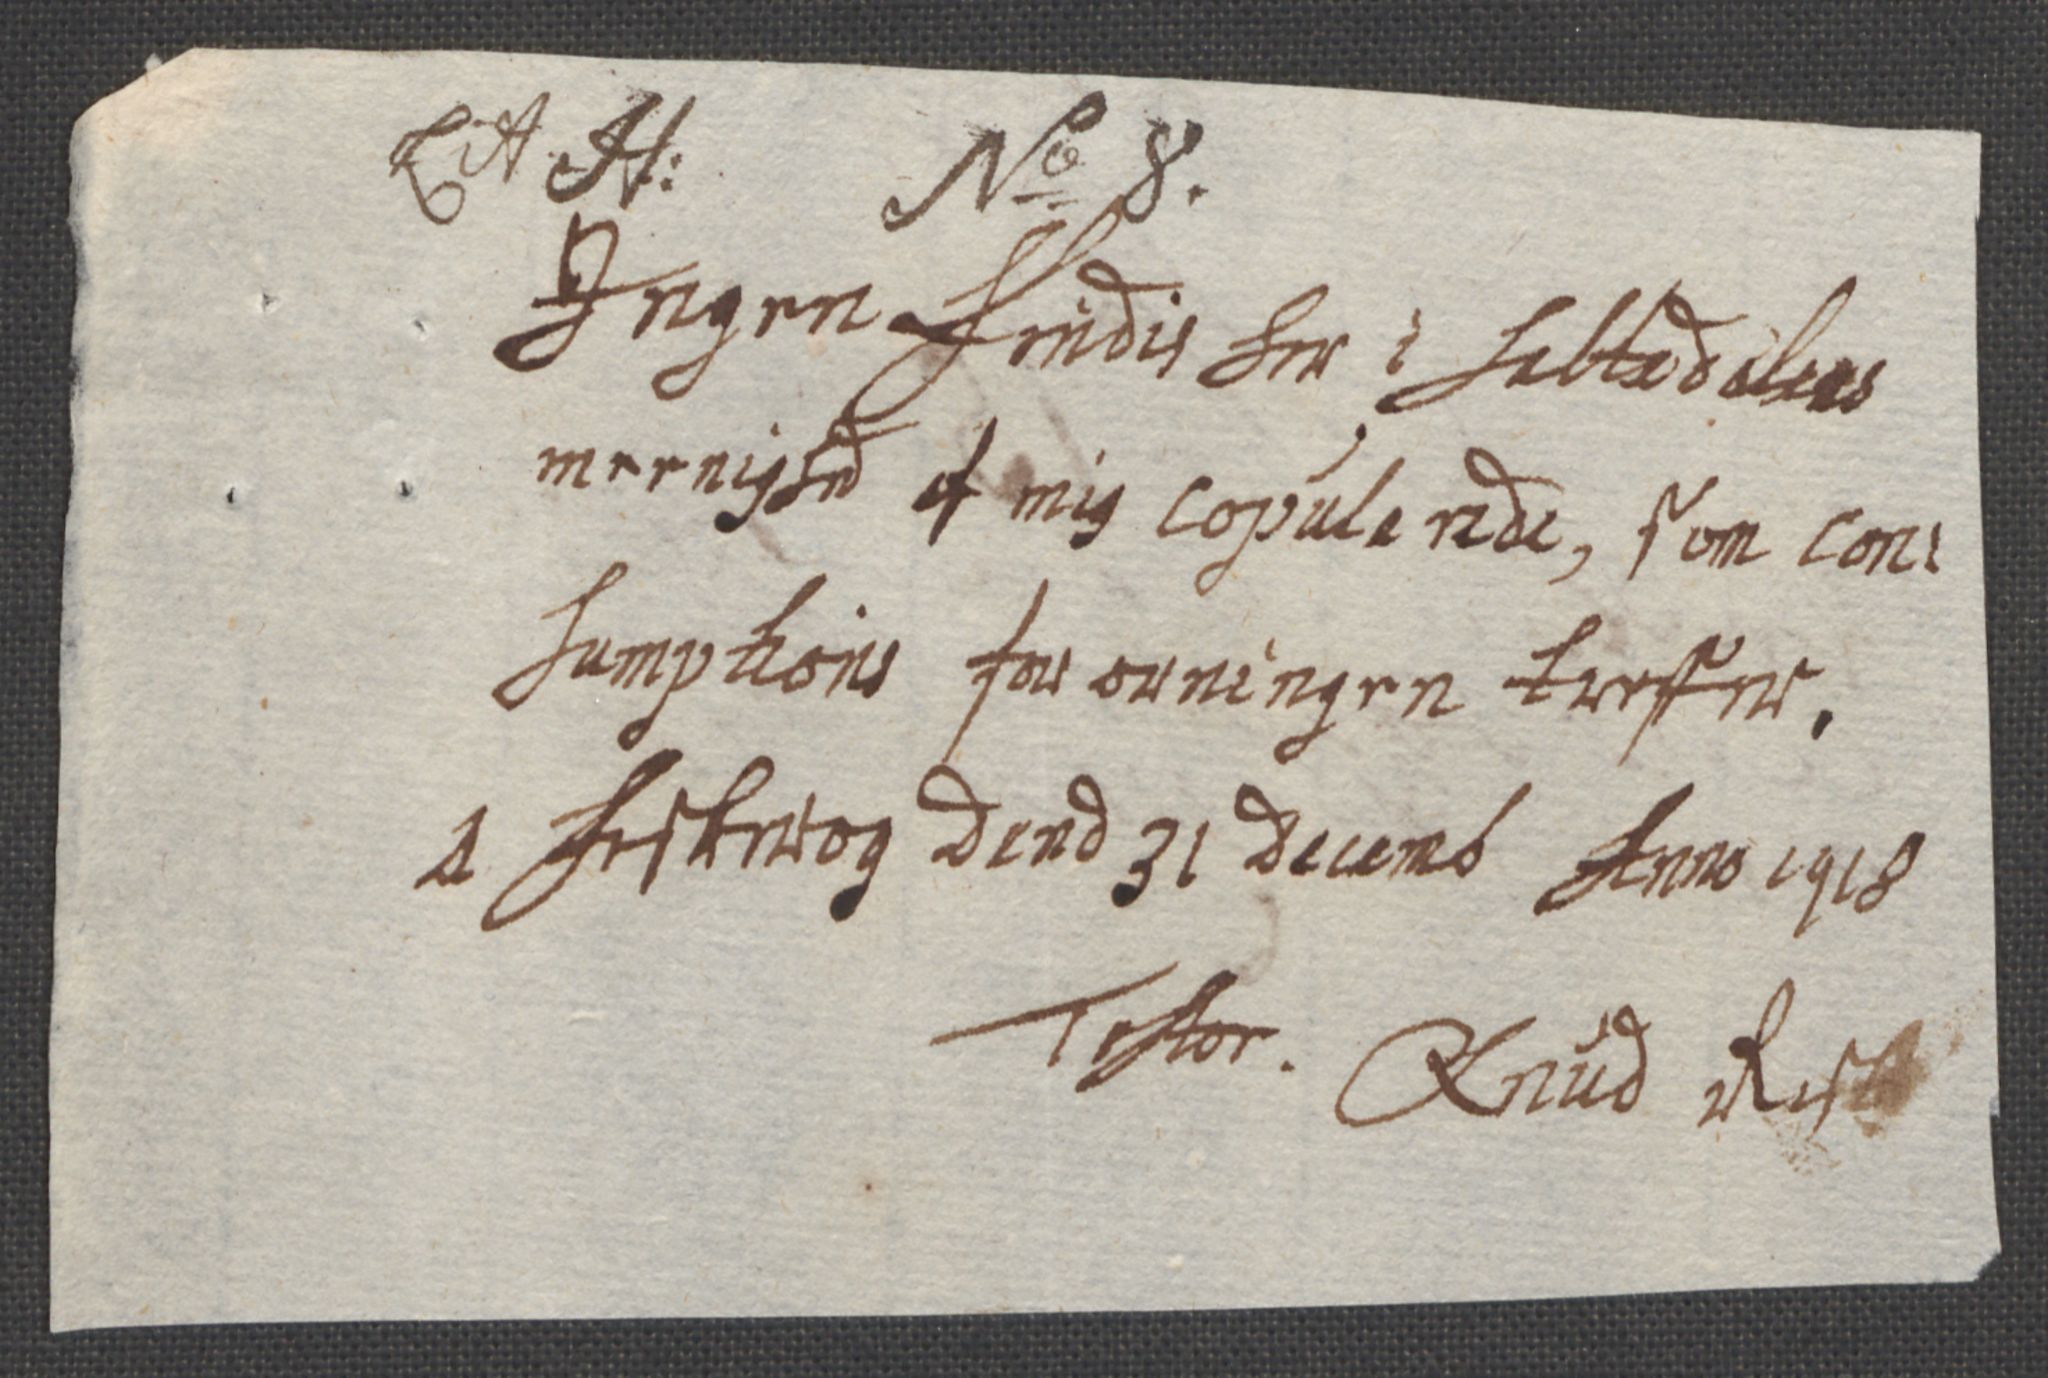 Lit H: No 8.
Ingen findis her i Saltedalens
meenighed af mig copulerede, som con:
sumptions forordningen treffer.
A Feskevog dend 31 decemb Anno 1918
Testor. Knud